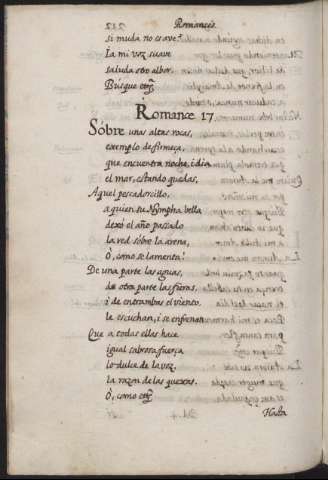 Romances.
si muda no es ave?
La mi voz suave
saluda otro albor.
Búsque etc.
Romance 17.
Sóbre unas altas rocas,
exemplo de firmeça,
que encuentra noche, i dia
el mar, estando quedas,
Aquel pescadorcillo,
a quien su Nympha bella
dexó el año passado
la red sóbre la arena,
Ò, como se lamenta!
De una parte las aguas,
de otra parte las fieras,
i de entrambas el viento,
le escuchan, i se enfrenan.
Que a todas ellas hace
igual sabrosa fuerça
lo dulce de la voz,
la razon de las quexas.
Ò, como etc.
Hasta